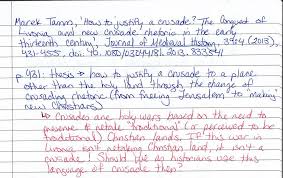 Marek Tamm, 'How to justify a crusade? The Conquest of
Livonia and new crusade rhetoric in the early
thirteenth century', Journal of Medieval History, 39:4 (2013),
431-455, doi: 10.1080/03044181.2013.833541
p. 431: thesis → how to justify a crusade to a place
other than the holy land through the change of
crusading rhetoric (from "freeing Jerusalem" to "making"
new Christians)
↳ Crusades are holy wars based on the need to
preserve to retake "traditional" (or perceived to be
traditional) Christian lands, IF this war in
Livonia isn't retaking Christian land, it isn't a
crusade! Should we as historians use this
language of crusade then?